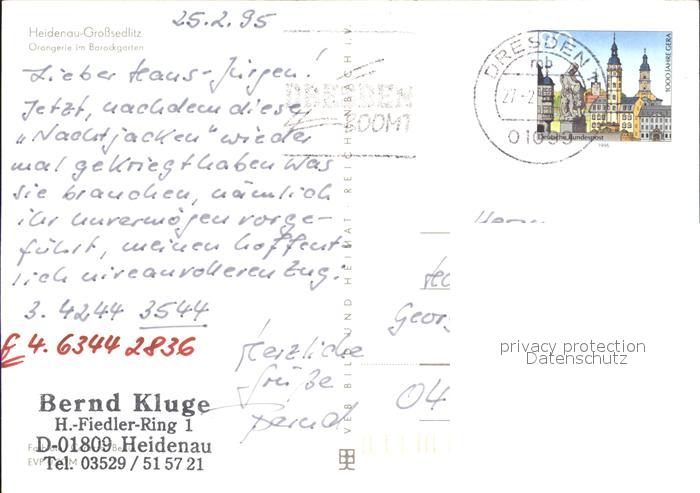 25.2.95
Heidenau-Großsedlitz
Orangerie im Barockgarten
Lieber Hans-Jürgen!
Jetzt, nachdem diese
„Nachtjacken" wieder
mal gekriegt haben was
sie brauchen, nämlich
ihr unvermögen vorge-
führt, meinen hoffent-
lich niveauvolleren Zug:
3. 4244 3544
f 4. 6344 2836
Herzliche
Grüße
Bernd
Bernd Kluge
H.-Fiedler-Ring 1
D-01809 Heidenau
Tel. 03529 / 51 57 21
EVP
VEB BILD UND HEIMAT · REICHENBACH i.V.
DRESDEN
BOOMT
DRESDEN
mb
27.2
010
1000 JAHRE GERA
Deutsche Bundespost
1995
Geor
04
privacy protection
Datenschutz